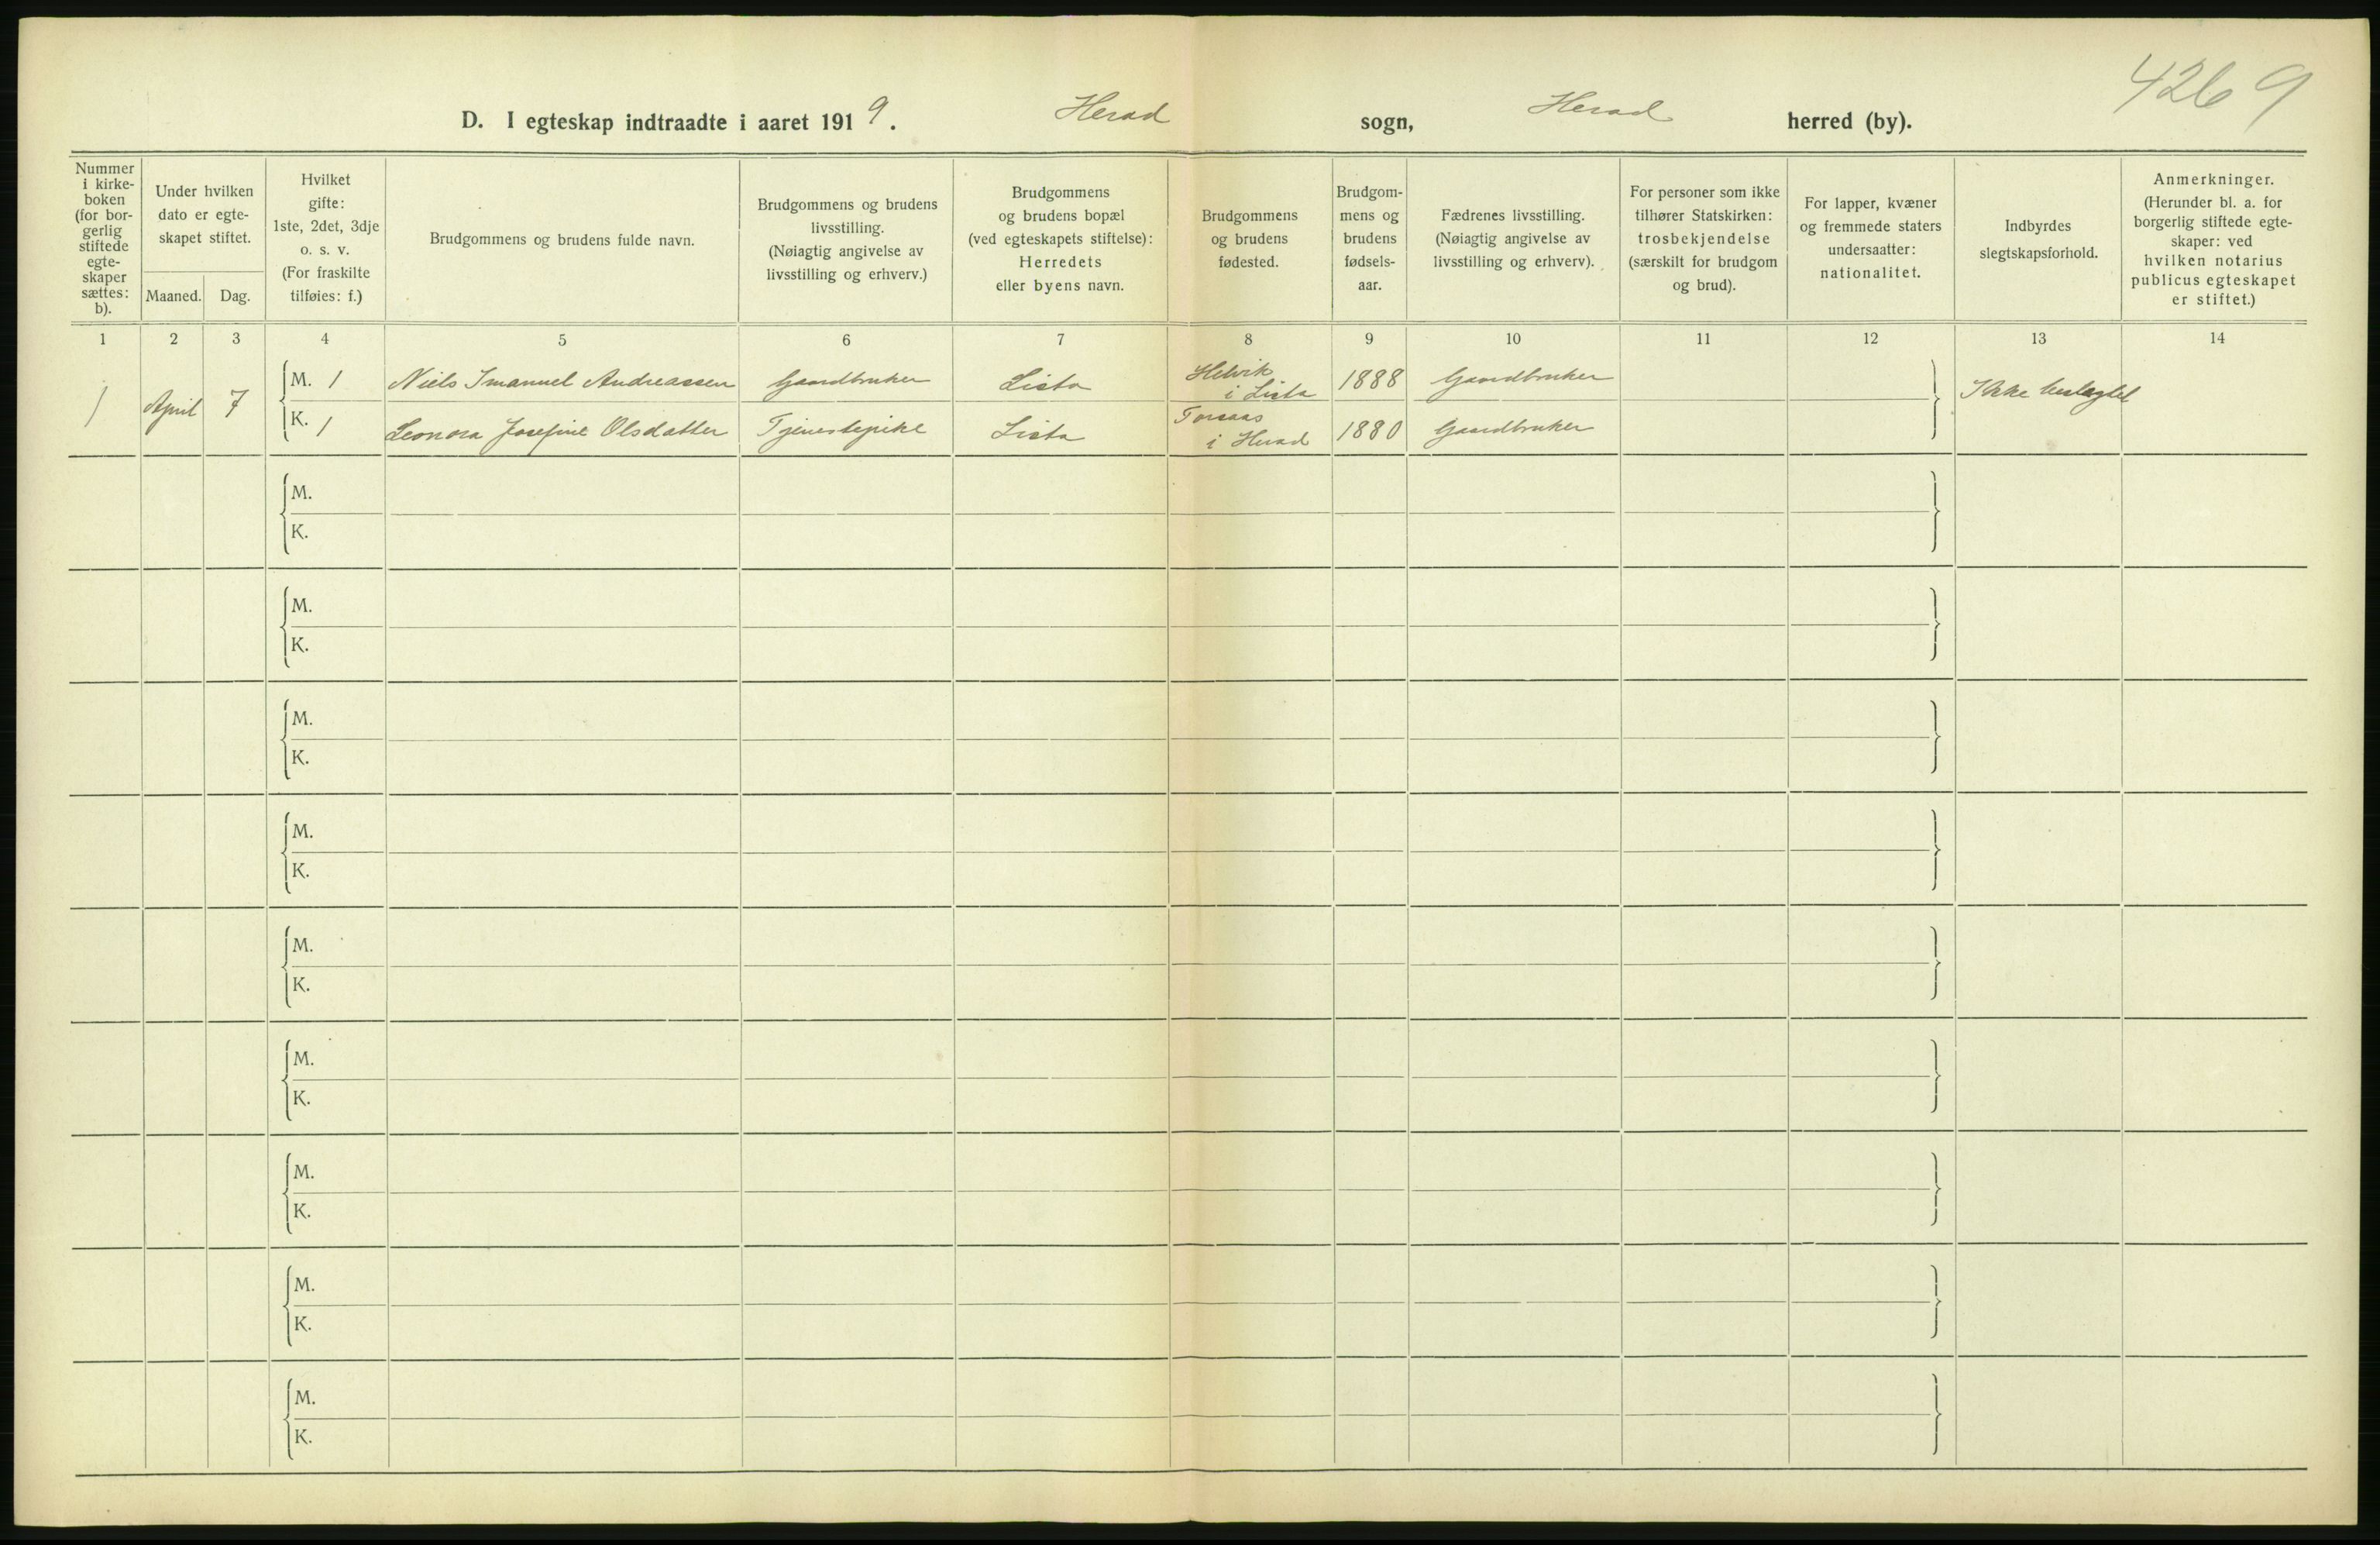 4269
D. I egteskap indtraadte i aaret 1919. Herad sogn, Herad herred (by).
Nummer
i kirke-
boken
(for bor-
gerlig
stiftede
egte-
skaper
sættes:
b).
Under hvilken
dato er egte-
skapet stiftet.
Maaned. Dag.
Hvilket
gifte:
1ste, 2det, 3dje
o. s. v.
(For fraskilte
tilføies: f.)
Brudgommens og brudens fulde navn.
Brudgommens og brudens
livsstilling.
(Nøiagtig angivelse av
livsstilling og erhverv.)
Brudgommens
og brudens bopæl
(ved egteskapets stiftelse):
Herredets
eller byens navn.
Brudgommens
og brudens
fødested.
Brudgom-
mens og
brudens
fødsels-
aar.
Fædrenes livsstilling.
(Nøiagtig angivelse av
livsstilling og erhverv).
For personer som ikke
tilhører Statskirken:
trosbekjendelse
(særskilt for brudgom
og brud).
For lapper, kvæner
og fremmede staters
undersaatter:
nationalitet.
Indbyrdes
slegtskapsforhold.
Anmerkninger.
(Herunder bl. a. for
borgerlig stiftede egte-
skaper: ved
hvilken notarius
publicus egteskapet
er stiftet.)
1 2 3 4 5 6 7 8 9 10 11 12 13 14
1 April 7
M. 1 Niels Imanuel Andreassen Gaardbruker Lista Helvik i Lista 1888 Gaardbruker
K. 1 Leonora Josefine Olsdatter Tjenestepike Lista Torsaas i Herad 1880 Gaardbruker
Ikke beslegtet
M.
K.
M.
K.
M.
K.
M.
K.
M.
K.
M.
K.
M.
K.
M.
K.
M.
K.